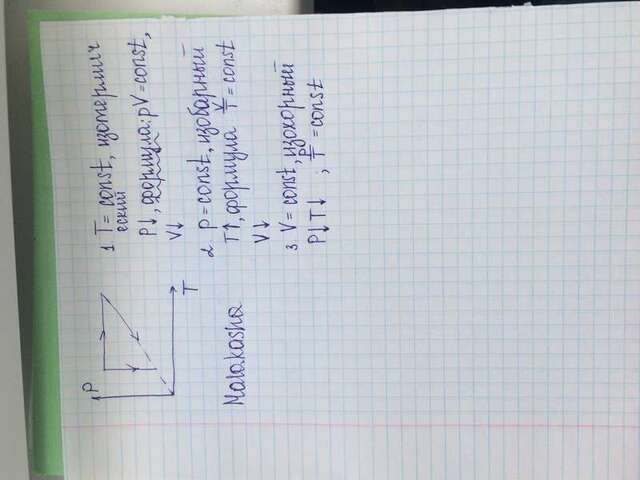 P
T
Mala.kasha
1. T = const, изотермич
еский
P↓, формула: pV = const,
V↓
2. p = const, изобарный
T↑, формула V/T = const
V↓
3. V = const, изохорный
P↓ T↓ ; P/T = const